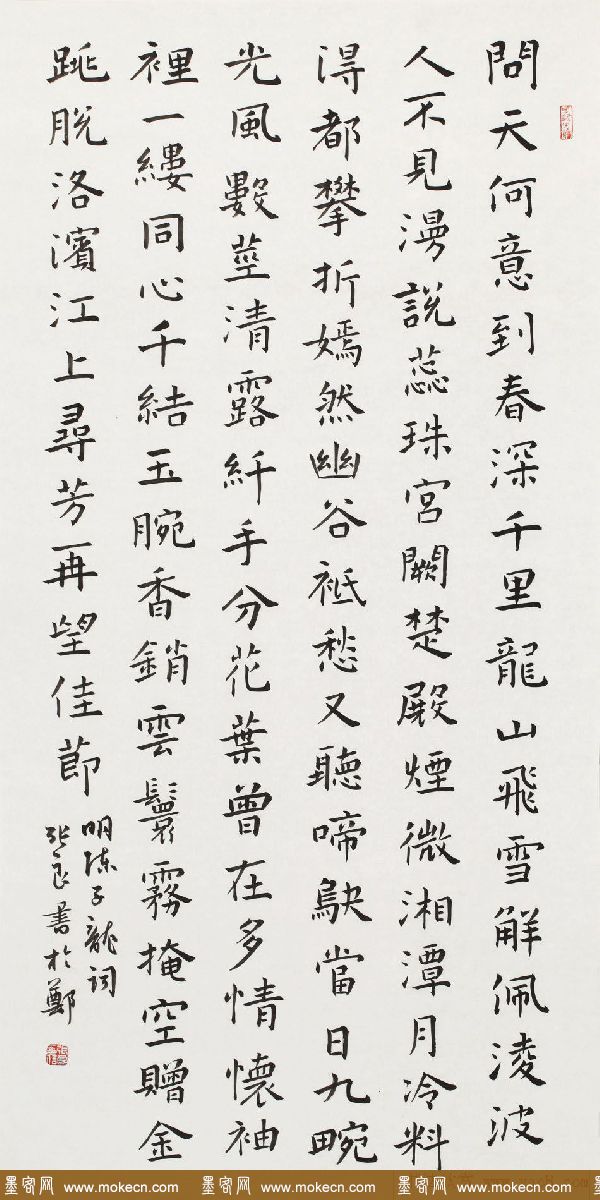 問天何意到春深千里龍山飛雪解佩淩波
人不見漫說蕊珠宮闕楚殿煙微湘潭月冷料
得都攀折嫣然幽谷衹愁又聽啼鴃當日九畹
光風數莖清露纤手分花葉曾在多情懷袖
裡一縷同心千結玉腕香銷雲鬟霧掩空贈金
跳脫洛濱江上尋芳再望佳節
明陳子龍詞
張良書於鄭
墨客网 www.mokecn.com 墨客网 www.mokecn.com 墨客网 www.mokecn.com